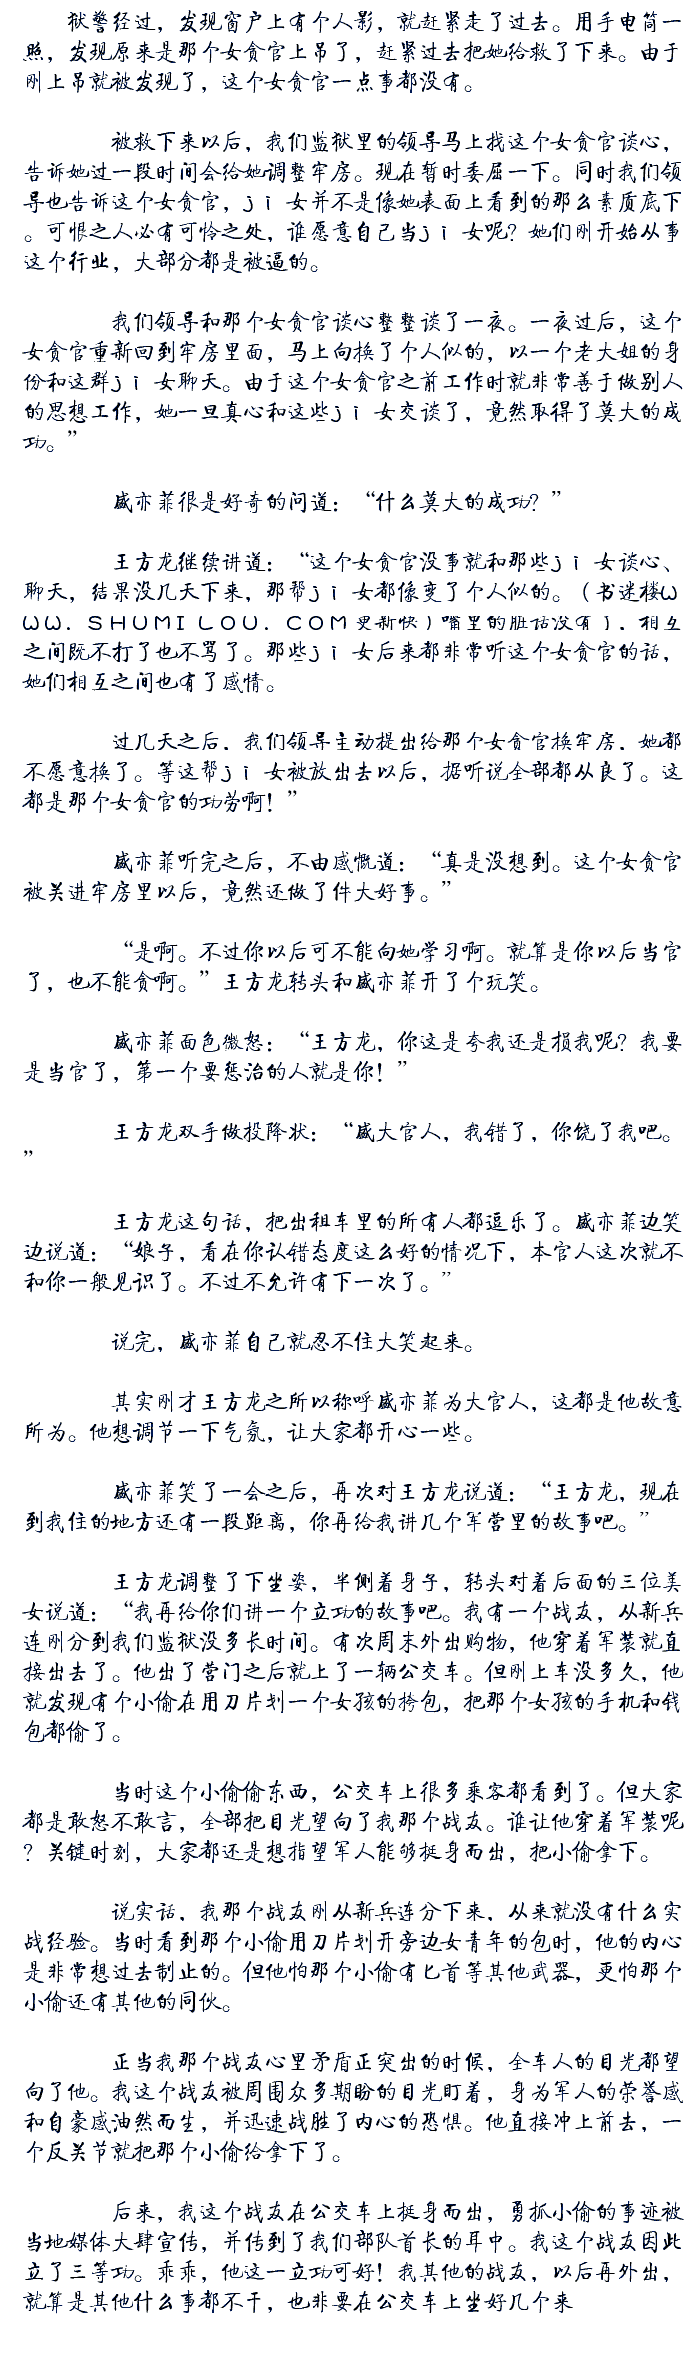 狱警经过，发现窗户上有个人影，就赶紧走了过去。用手电筒一
照，发现原来是那个女贪官上吊了，赶紧过去把她给救了下来。由于
刚上吊就被发现了，这个女贪官一点事都没有。
被救下来以后，我们监狱里的领导马上找这个女贪官谈心，
告诉她过一段时间会给她调整牢房。现在暂时委屈一下。同时我们领
导也告诉这个女贪官，jì女并不是像她表面上看到的那么素质底下
。可恨之人必有可怜之处，谁愿意自己当jì女呢？她们刚开始从事
这个行业，大部分都是被逼的。
我们领导和那个女贪官谈心整整谈了一夜。一夜过后，这个
女贪官重新回到牢房里面，马上向换了个人似的，以一个老大姐的身
份和这群jì女聊天。由于这个女贪官之前工作时就非常善于做别人
的思想工作，她一旦真心和这些jì女交谈了，竟然取得了莫大的成
功。”
戚亦菲很是好奇的问道：“什么莫大的成功？”
王方龙继续讲道：“这个女贪官没事就和那些jì女谈心、
聊天，结果没几天下来，那帮jì女都像变了个人似的。（书迷楼W
WW．SHUMILOU．COM更新快）嘴里的脏话没有了，相互
之间既不打了也不骂了。那些jì女后来都非常听这个女贪官的话，
她们相互之间也有了感情。
过几天之后，我们领导主动提出给那个女贪官换牢房，她都
不愿意换了。等这帮jì女被放出去以后，据听说全部都从良了。这
都是那个女贪官的功劳啊！”
戚亦菲听完之后，不由感慨道：“真是没想到。这个女贪官
被关进牢房里以后，竟然还做了件大好事。”
“是啊。不过你以后可不能向她学习啊。就算是你以后当官
了，也不能贪啊。”王方龙转头和戚亦菲开了个玩笑。
戚亦菲面色微怒：“王方龙，你这是夸我还是损我呢？我要
是当官了，第一个要惩治的人就是你！”
王方龙双手做投降状：“戚大官人，我错了，你饶了我吧。
”
王方龙这句话，把出租车里的所有人都逗乐了。戚亦菲边笑
边说道：“娘子，看在你认错态度这么好的情况下，本官人这次就不
和你一般见识了。不过不允许有下一次了。”
说完，戚亦菲自己就忍不住大笑起来。
其实刚才王方龙之所以称呼戚亦菲为大官人，这都是他故意
所为。他想调节一下气氛，让大家都开心一些。
戚亦菲笑了一会之后，再次对王方龙说道：“王方龙，现在
到我住的地方还有一段距离，你再给我讲几个军营里的故事吧。”
王方龙调整了下坐姿，半侧着身子，转头对着后面的三位美
女说道：“我再给你们讲一个立功的故事吧。我有一个战友，从新兵
连刚分到我们监狱没多长时间。有次周末外出购物，他穿着军装就直
接出去了。他出了营门之后就上了一辆公交车。但刚上车没多久，他
就发现有个小偷在用刀片划一个女孩的挎包，把那个女孩的手机和钱
包都偷了。
当时这个小偷偷东西，公交车上很多乘客都看到了。但大家
都是敢怒不敢言，全部把目光望向了我那个战友。谁让他穿着军装呢
？关键时刻，大家都还是想指望军人能够挺身而出，把小偷拿下。
说实话，我那个战友刚从新兵连分下来，从来就没有什么实
战经验。当时看到那个小偷用刀片划开旁边女青年的包时，他的内心
是非常想过去制止的。但他怕那个小偷有匕首等其他武器，更怕那个
小偷还有其他的同伙。
正当我那个战友心里矛盾正突出的时候，全车人的目光都望
向了他。我这个战友被周围众多期盼的目光盯着，身为军人的荣誉感
和自豪感油然而生，并迅速战胜了内心的恐惧。他直接冲上前去，一
个反关节就把那个小偷给拿下了。
后来，我这个战友在公交车上挺身而出，勇抓小偷的事迹被
当地媒体大肆宣传，并传到了我们部队首长的耳中。我这个战友因此
立了三等功。乖乖，他这一立功可好！我其他的战友，以后再外出，
就算是其他什么事都不干，也非要在公交车上坐好几个来